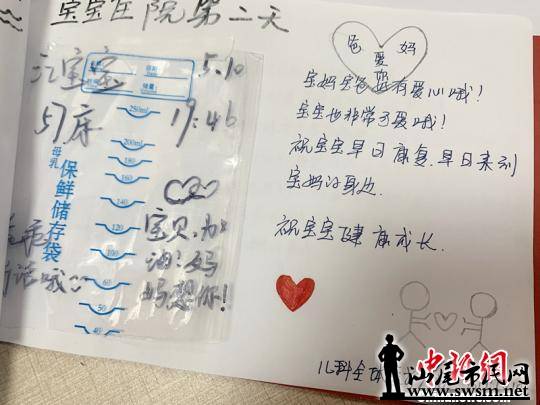 宝宝住院第二天
宝宝
5.10
57床
19:46
250ml
200ml
180
160
140
120
100
50
母乳
保鲜储存袋
宝贝,加
油!妈
妈想你!
乖乖
听话哦
爸爱妈
宝妈宝爸很有爱心哦!
宝宝也非常可爱哦!
祝宝宝早日康复.早日来到
宝妈的身边.
祝宝宝健康成长.
儿科全体
汕尾市民网
www.swsm.net